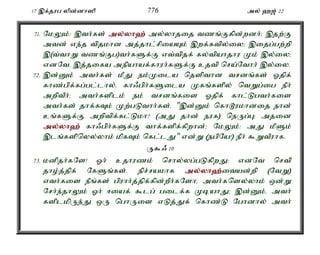 17 இக்தரப லின்னாஸி 776 அல் ஹஜ் 22
71. மேலும்: இவர்கள் அல்லாஹ் அல்லாததை வணங்குகின்றனர்; இதற்கு
அவன் எந்த விதமான அத்தாட்சியையும் இறக்கவில்லை; இதைப்பற்றி
இ(வ்வாறு வணங்குப)வர்களுக்கு எவ்வித கல்வியாதார மும் இல்லை;
எனவே, இத்தகைய அநியாயக்காரர்களுக்கு உதவி செய்வோர் இல்லை.
72. இன்னும் அவர்கள் மீது நம்முடைய தெளிவான வசனங்கள் ஓதிக்
காண்பிக்கப்பட்டால், காஃபிர்களுடைய முகங்களில் வெறுப்பை நீர்
அறிவீர்; அவர்களிடம் நம் வசனங்களை ஓதிக் காட்டுபவர்களை
அவர்கள் தாக்கவும் முற்படுவார்கள், "இன்னும் கொடூரமானதை நான்
உங்களுக்கு அறிவிக்கட்டுமா? (அது தான் நரக) நெருப்பு அதனை
அல்லாஹ் காஃபிர்களுக்கு வாக்களிக்கிறான்; மேலும்; அது மீளும்
இடங்களிலெல்லாம் மிகவும் கெட்டது" என்று (நபியே!) நீர் கூறுவீராக.
ருகூஃ 10
73. மனிதர்களே! ஓர் உதாரணம் சொல்லப்படுகிறது; எனவே செவி
தாழ்த்திக் கேளுங்கள். நிச்சயமாக அல்லாஹ்வையன்றி (வேறு)
எவர்களை நீங்கள் பிரார்த்திக்கின்றீர்களோ, அவர்களெல்லாம் ஒன்று
சேர்ந்தாலும் ஓர் ஈயைக் கூடப் படைக்க முடியாது; இன்னும், அவர்
களிடமிருந்து ஒரு பொருளை எடுத்துக் கொண்டு போனால் அவர்